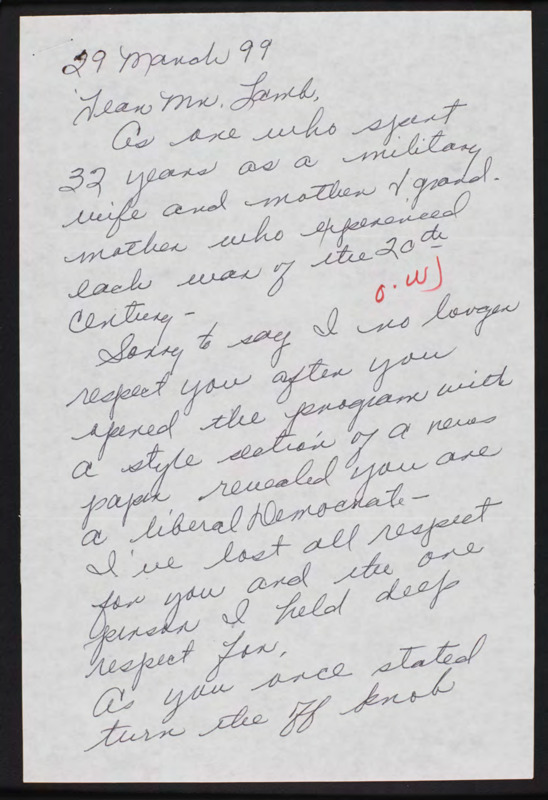 29 March 99
Dear Mr. Lamb,
As one who spent
32 years as a military
wife and mother & grand-
mother who experienced
each war of the 20th
Century -
o.w.
Sorry to say I no longer
respect you after you
opened the program with
a style section of a news
paper revealed you are
a liberal Democrat -
I've lost all respect
for you and the one
person I held deep
respect for.
As you once stated
turn the off knob